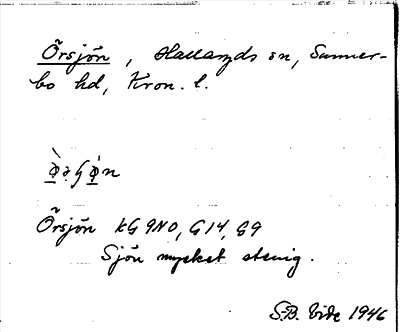 Örsjön, Hallaryds sn, Sunner-
bo hd, Kron. l.
Örsjön KG 9NO, G14, G9
Sjön mycket stenig.
S-B. Vide 1946